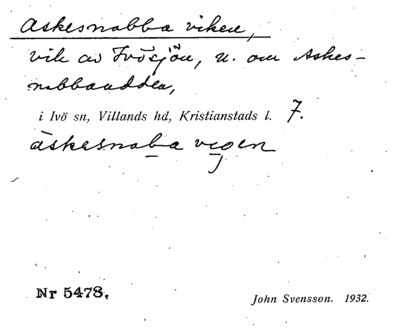 Askesnabba viken,
vik av Ivösjön, n. om Askes-
nabbaudden,
i Ivö sn, Villands hd, Kristianstads l. 7.
äskesnaba vegen
Nr 5478.
John Svensson. 1932.